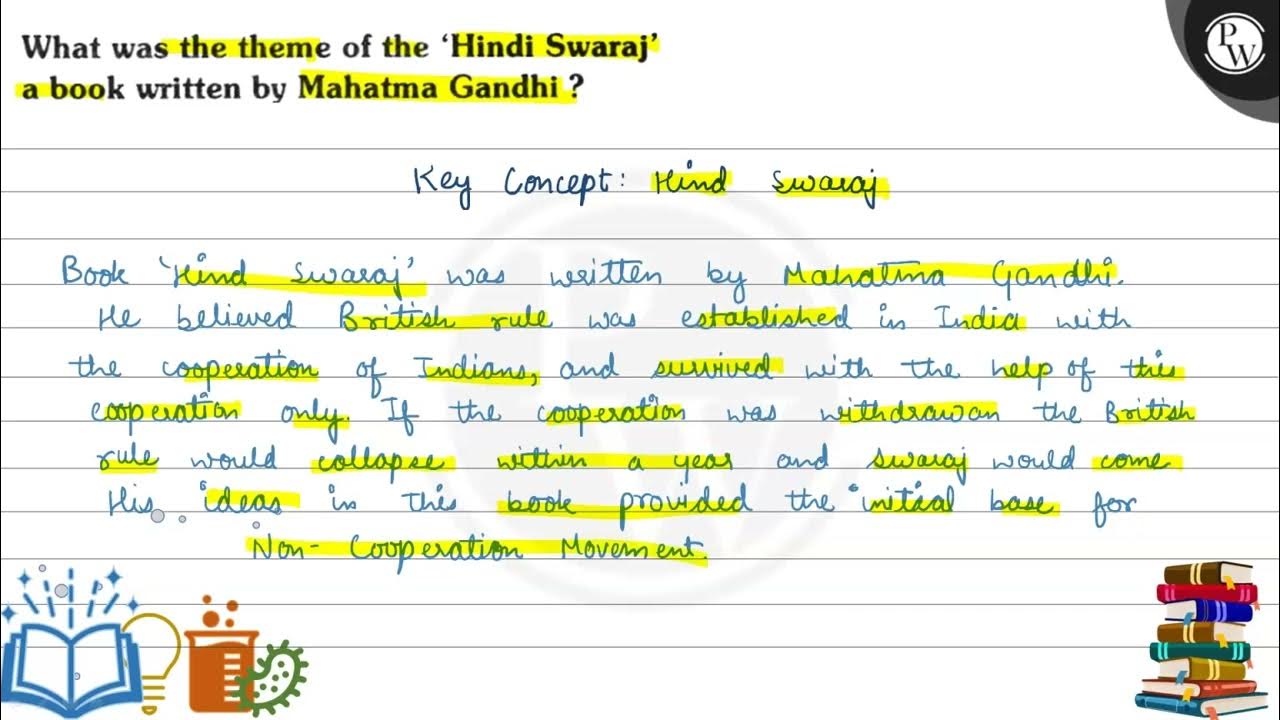 What was the theme of the ‘Hindi Swaraj’
a book written by Mahatma Gandhi ?
PW
Key Concept: Hind Swaraj
Book ‘Hind Swaraj’ was written by Mahatma Gandhi.
He believed British rule was established in India with
the cooperation of Indians, and survived with the help of this
cooperation only. If the cooperation was withdrawan the British
rule would collapse within a year and swaraj would come
His ideas in this book provided the initial base for
Non- Cooperation Movement.